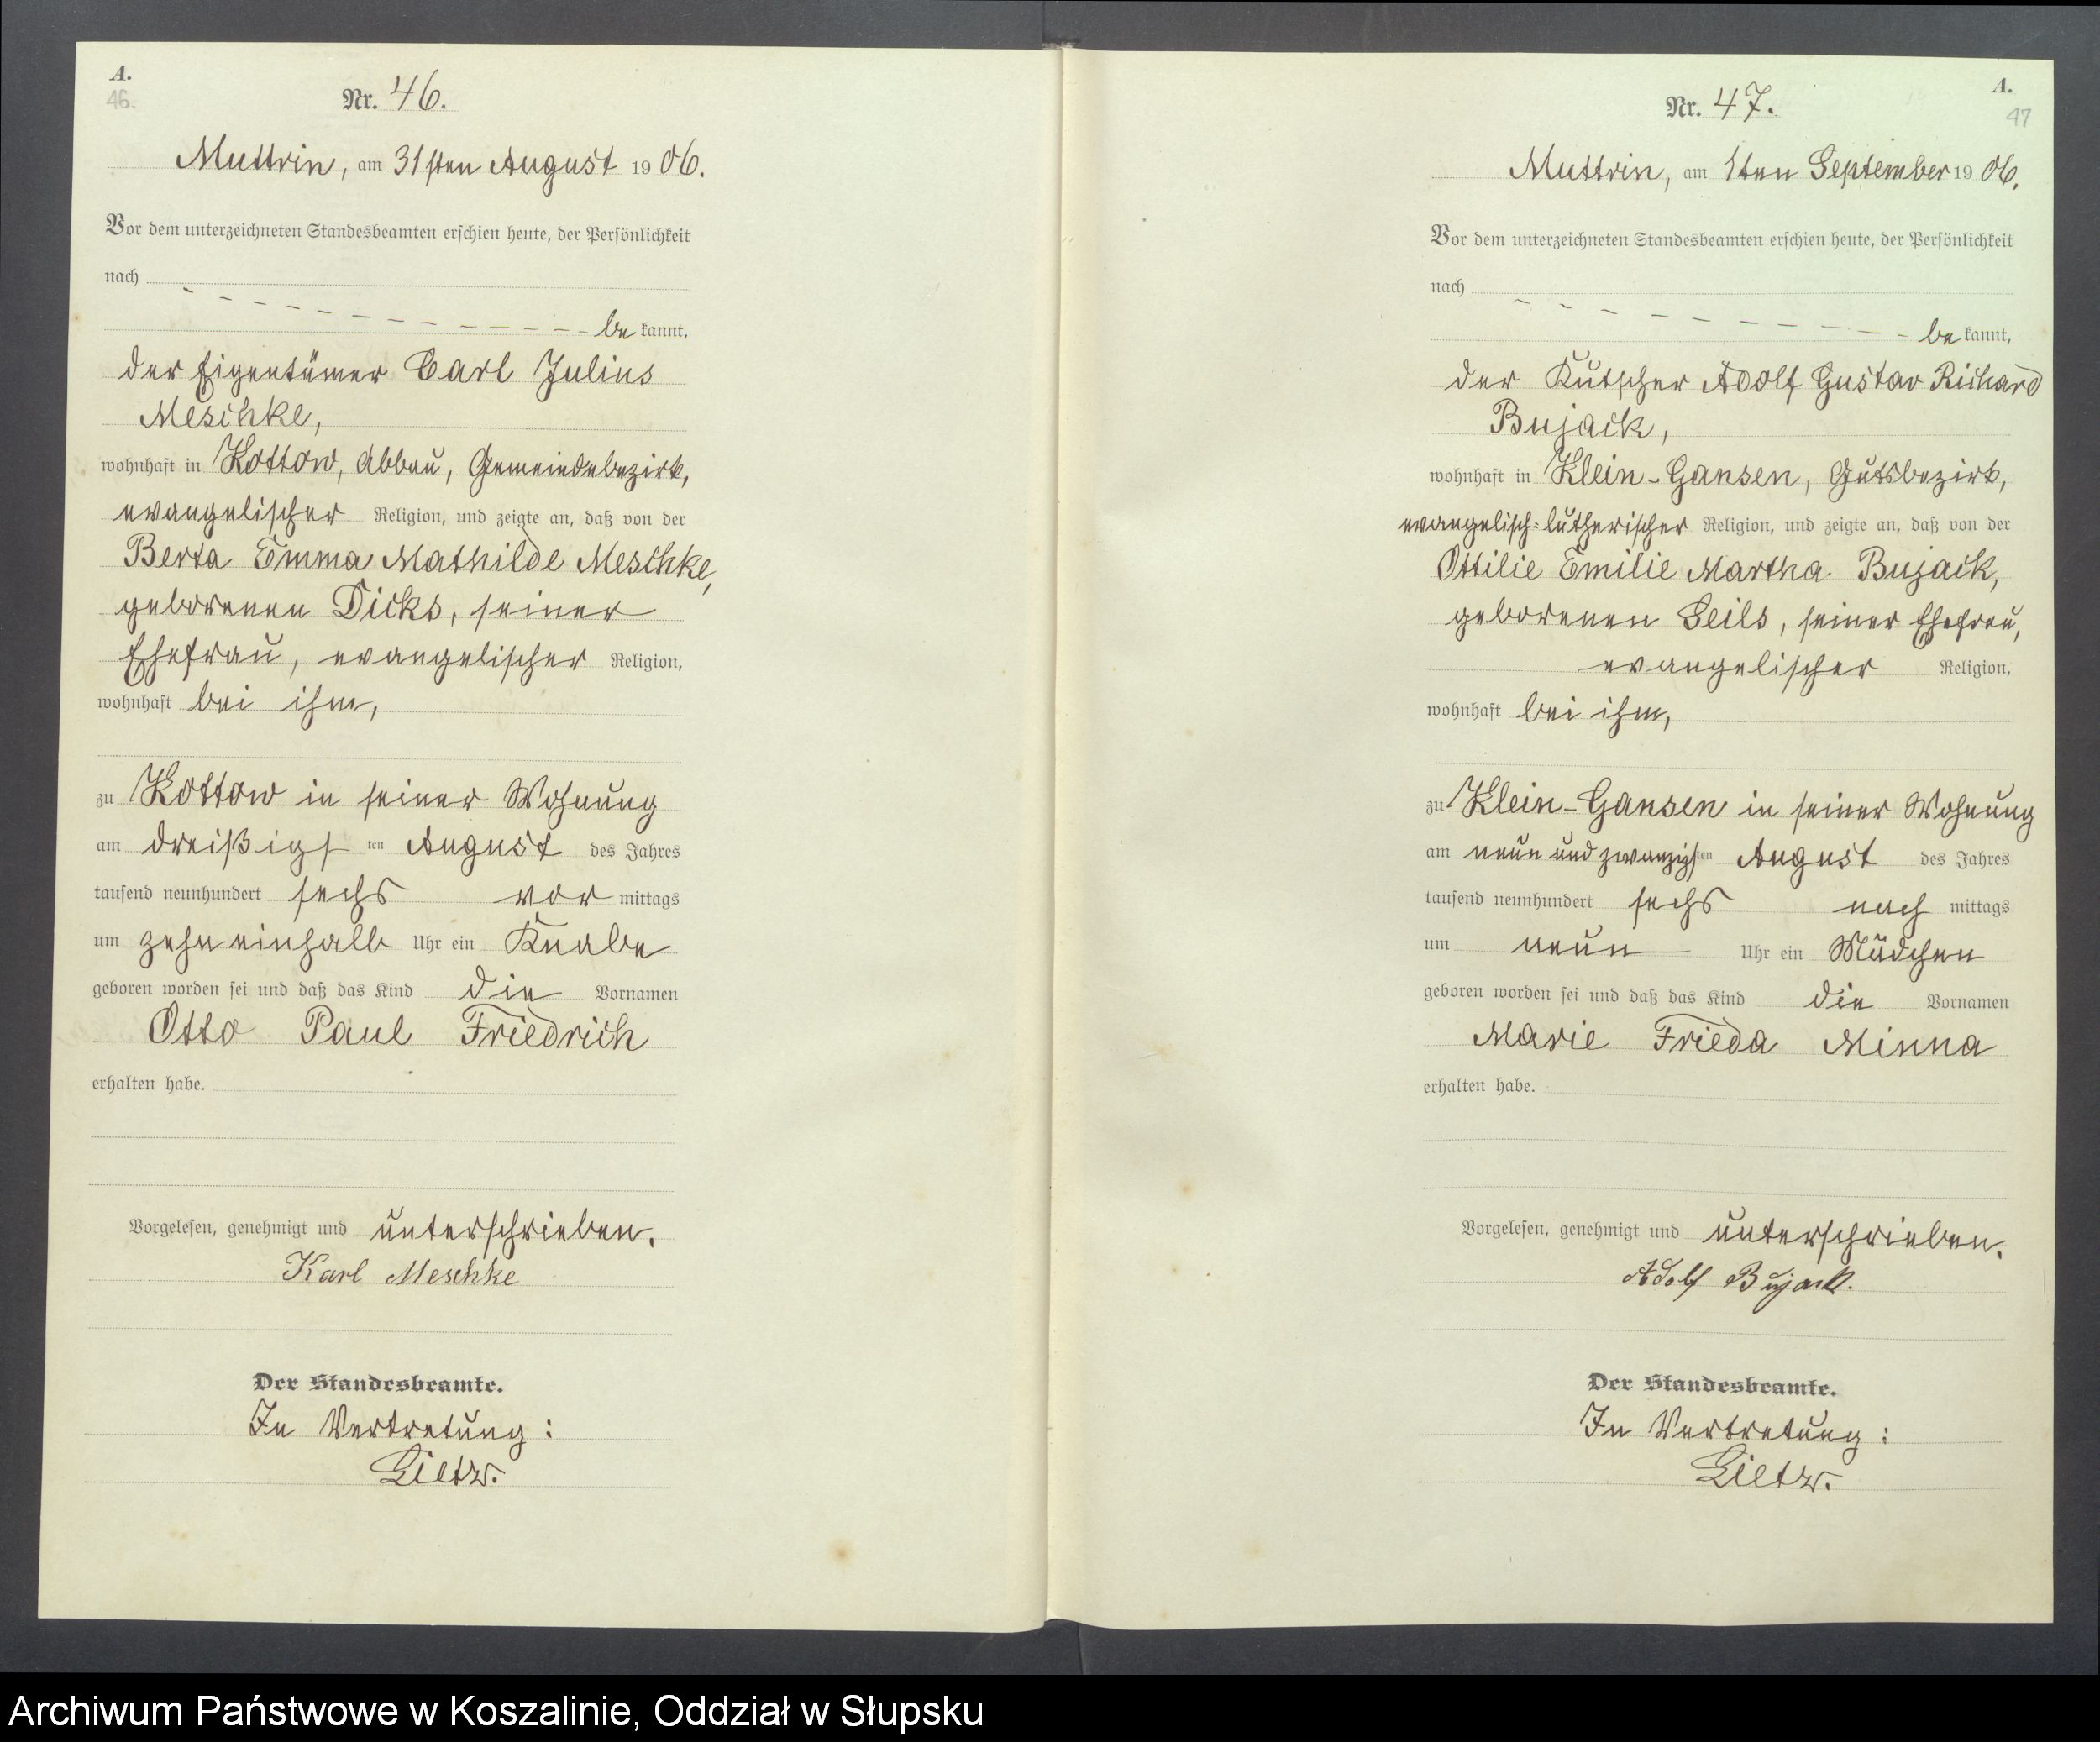 A.
46.
Nr. 46.
Muttrin, am 31sten August 1906.
Vor dem unterzeichneten Standesbeamten erschien heute, der Persönlichkeit
nach
be kannt,
der Eigentümer Carl Julius
Meschke,
wohnhaft in Kottow, Abbau, Gemeindebezirk,
evangelischer Religion, und zeigte an, daß von der
Berta Emma Mathilde Meschke,
geborenen Dicks, seiner
Ehefrau, evangelischer Religion,
wohnhaft bei ihm,
zu Kottow in seiner Wohnung
am dreißigsten August des Jahres
tausend neunhundert sechs vor mittags
um zehn einhalb Uhr ein Knabe
geboren worden sei und daß das Kind die Vornamen
Otto Paul Friedrich
erhalten habe.
Vorgelesen, genehmigt und unterschrieben.
Karl Meschke
Der Standesbeamte.
In Vertretung:
Lietz.
A.
47
Nr. 47.
Muttrin, am 1ten September 1906.
Vor dem unterzeichneten Standesbeamten erschien heute, der Persönlichkeit
nach
be kannt,
der Kutscher Adolf Gustav Richard
Bujack,
wohnhaft in Klein-Gansen, Gutsbezirk,
evangelisch-lutherischer Religion, und zeigte an, daß von der
Ottilie Emilie Martha Bujack,
geborenen Seils, seiner Ehefrau,
evangelischer Religion,
wohnhaft bei ihm,
zu Klein-Gansen in seiner Wohnung
am neun und zwanzigsten August des Jahres
tausend neunhundert sechs nach mittags
um neun Uhr ein Mädchen
geboren worden sei und daß das Kind die Vornamen
Marie Frieda Minna
erhalten habe.
Vorgelesen, genehmigt und unterschrieben.
Adolf Bujack.
Der Standesbeamte.
In Vertretung:
Lietz.
Archiwum Państwowe w Koszalinie, Oddział w Słupsku